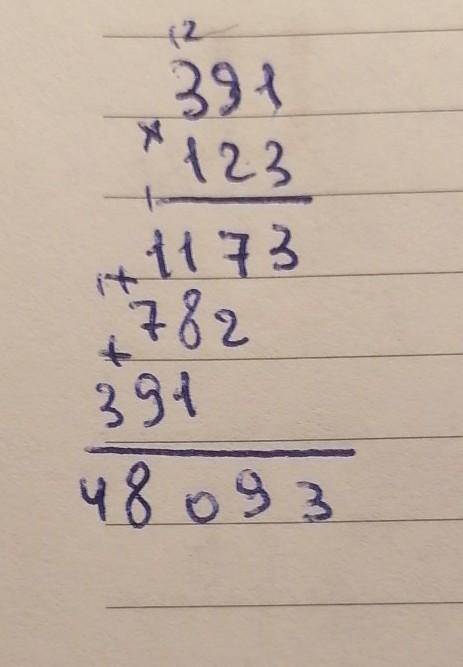 12
391
× 123
1
1173
1+
782
+
391
48093